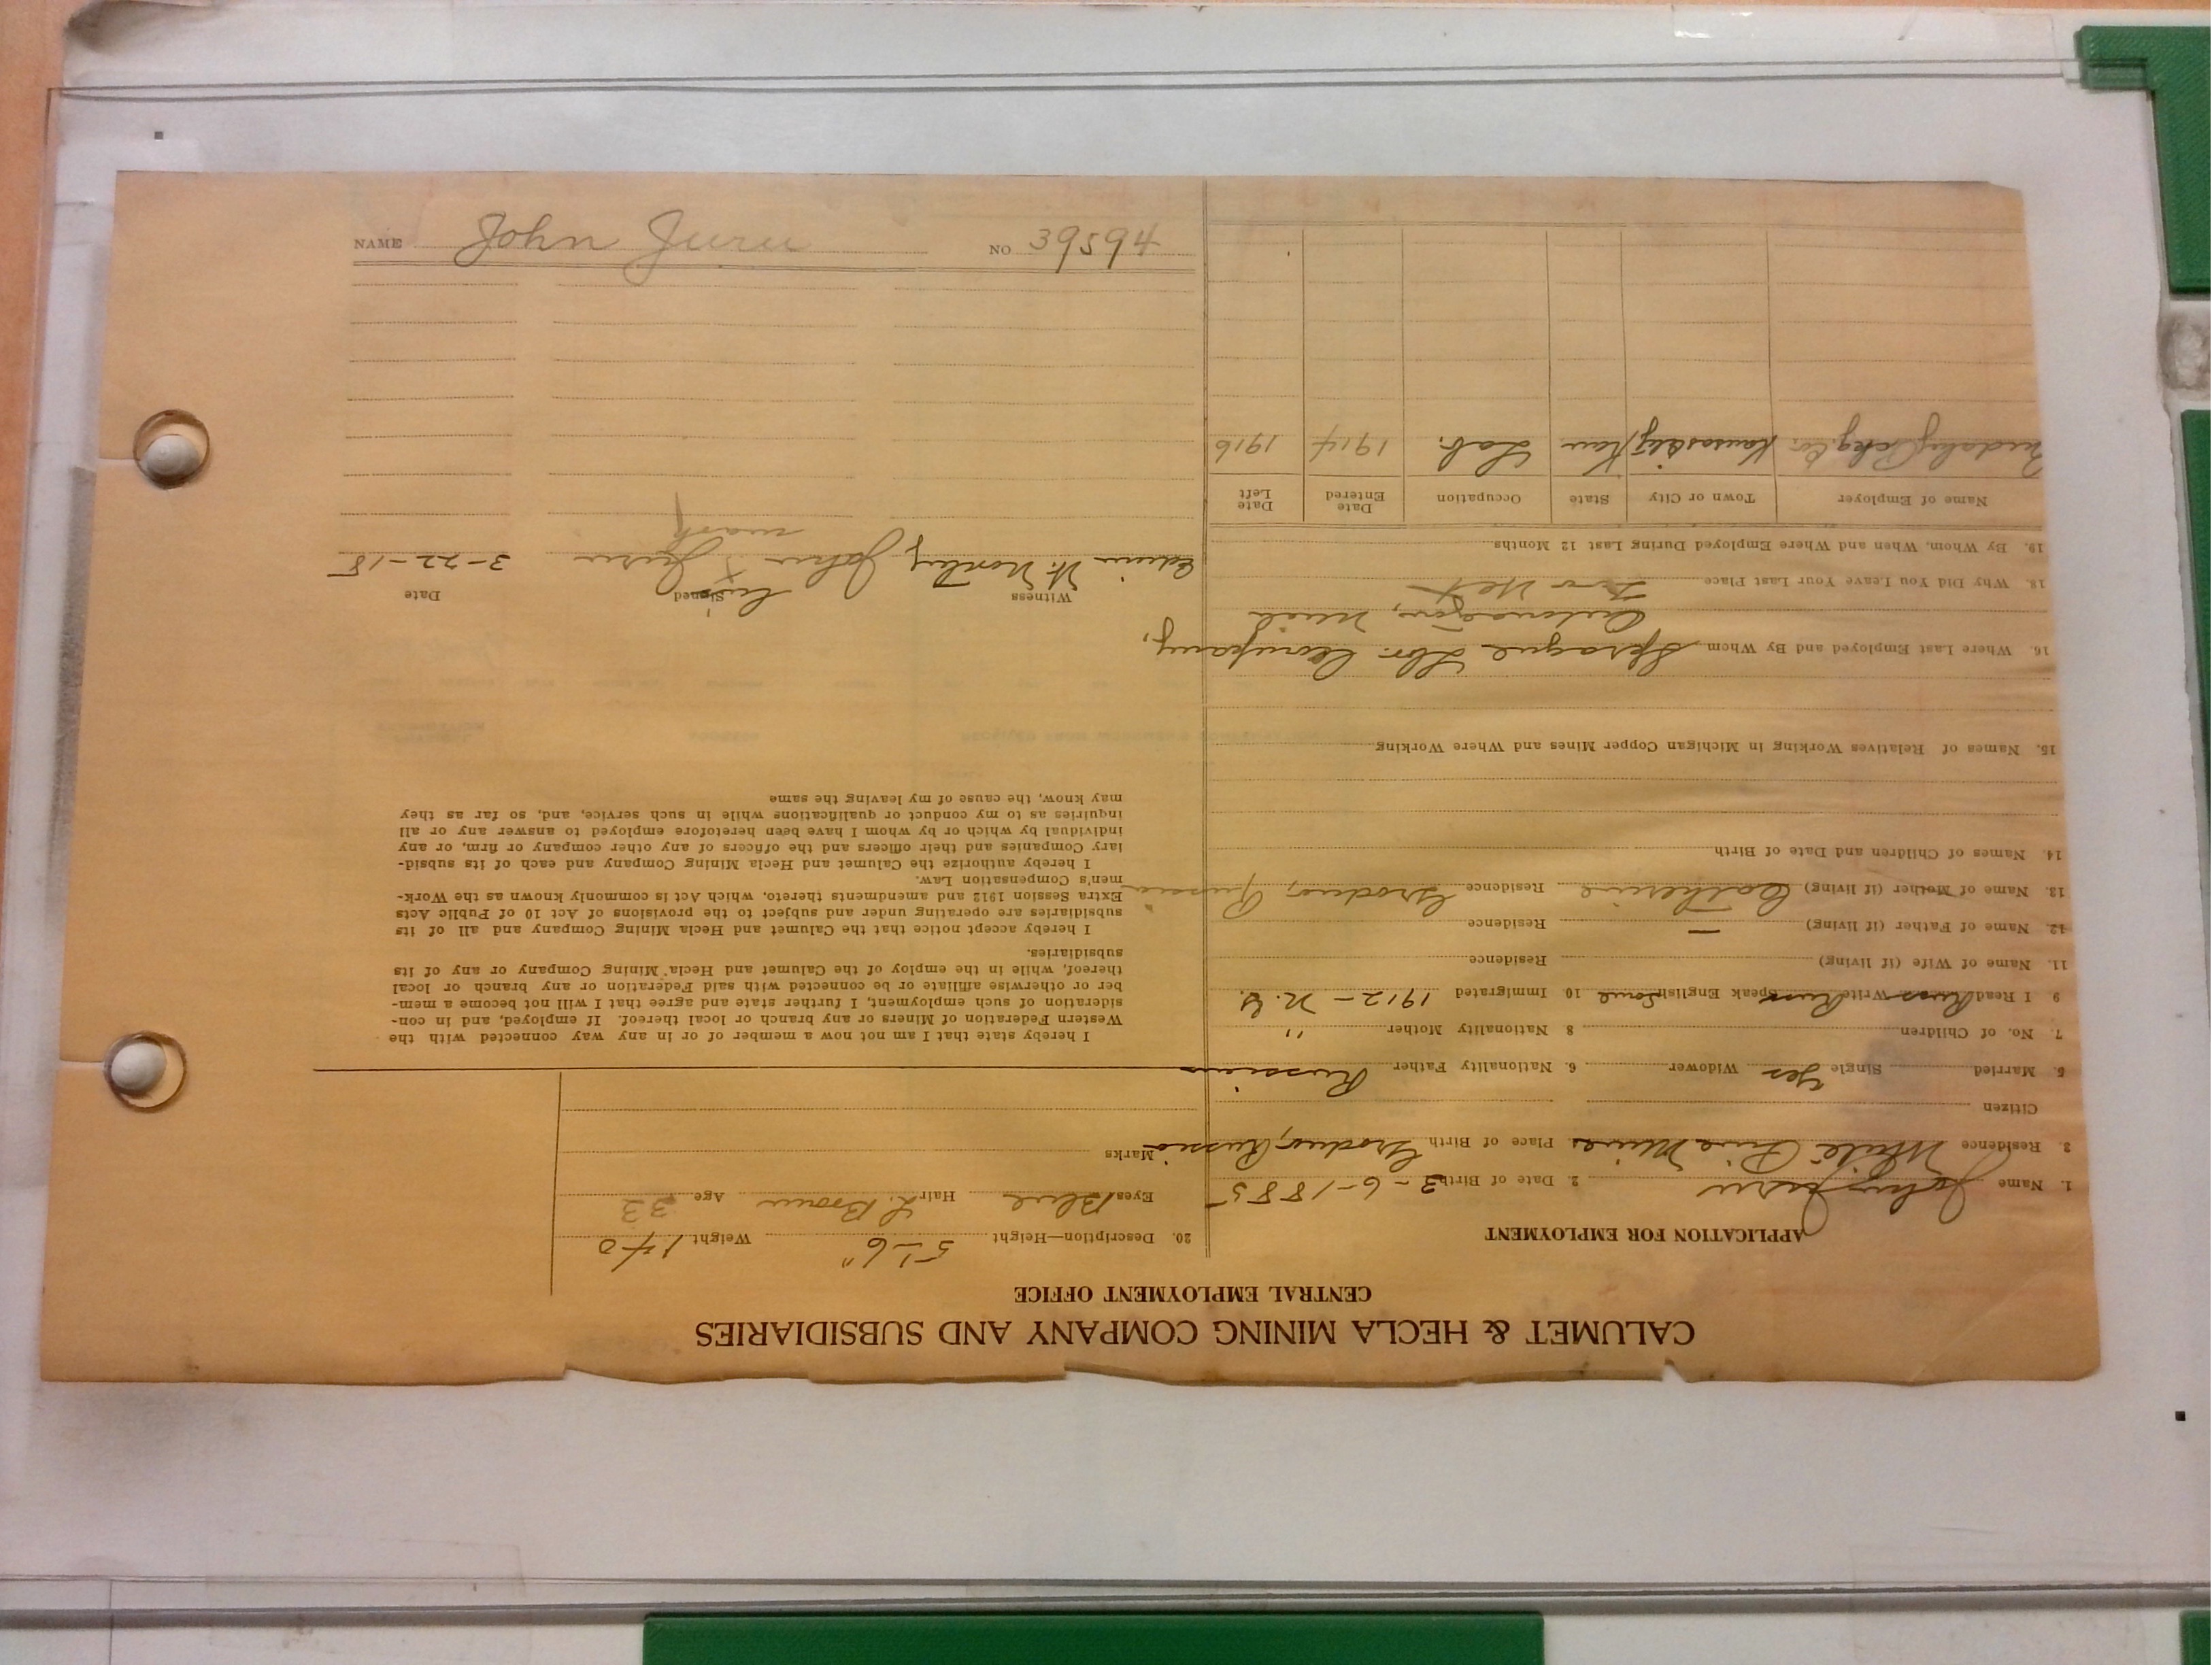 NAME John Juru NO 39594
CALUMET & HECLA MINING COMPANY AND SUBSIDIARIES
CENTRAL EMPLOYMENT OFFICE
APPLICATION FOR EMPLOYMENT
1. Name John Juru 2. Date of Birth 3-6-1885
3. Residence White Pine Mines Place of Birth Grodno, Russia
Citizen
5. Married Single Yes Widower 6. Nationality Father Russian
7. No. of Children 8 Nationality Mother "
9 I Read Russ Write Russ Speak English Some 10 Immigrated 1912 - N.Y.
11. Name of Wife (if living) Residence
12. Name of Father (if living) — Residence
13. Name of Mother (if living) Catherine Residence Grodno, Russia
14. Names of Children and Date of Birth
15. Names of Relatives Working in Michigan Copper Mines and Where Working
16. Where Last Employed and By Whom Sprague Lbr. Company,
Mich
18. Why Did You Leave Your Last Place
19. By Whom, When and Where Employed During Last 12 Months
Name of Employer Town or City State Occupation Date Entered Date Left
Cudahy Pckg. Co. Kansas City Kan Lab. 1914 1916
20. Description—Height 5'-6" Weight 140
Eyes Blue Hair L. Brown Age 33
Marks
I hereby state that I am not now a member of or in any way connected with the
Western Federation of Miners or any branch or local thereof. If employed, and in con-
sideration of such employment, I further state and agree that I will not become a mem-
ber or otherwise affiliate or be connected with said Federation or any branch or local
thereof, while in the employ of the Calumet and Hecla Mining Company or any of its
subsidiaries.
I hereby accept notice that the Calumet and Hecla Mining Company and all of its
subsidiaries are operating under and subject to the provisions of Act 10 of Public Acts
Extra Session 1912 and amendments thereto, which Act is commonly known as the Work-
men's Compensation Law.
I hereby authorize the Calumet and Hecla Mining Company and each of its subsid-
iary Companies and their officers and the officers of any other company or firm, or any
individual by which or by whom I have been heretofore employed to answer any or all
inquiries as to my conduct or qualifications while in such service, and, so far as they
may know, the cause of my leaving the same
Witness Signed Date
his
Edwin W. John X Juru 3-22-18
mark